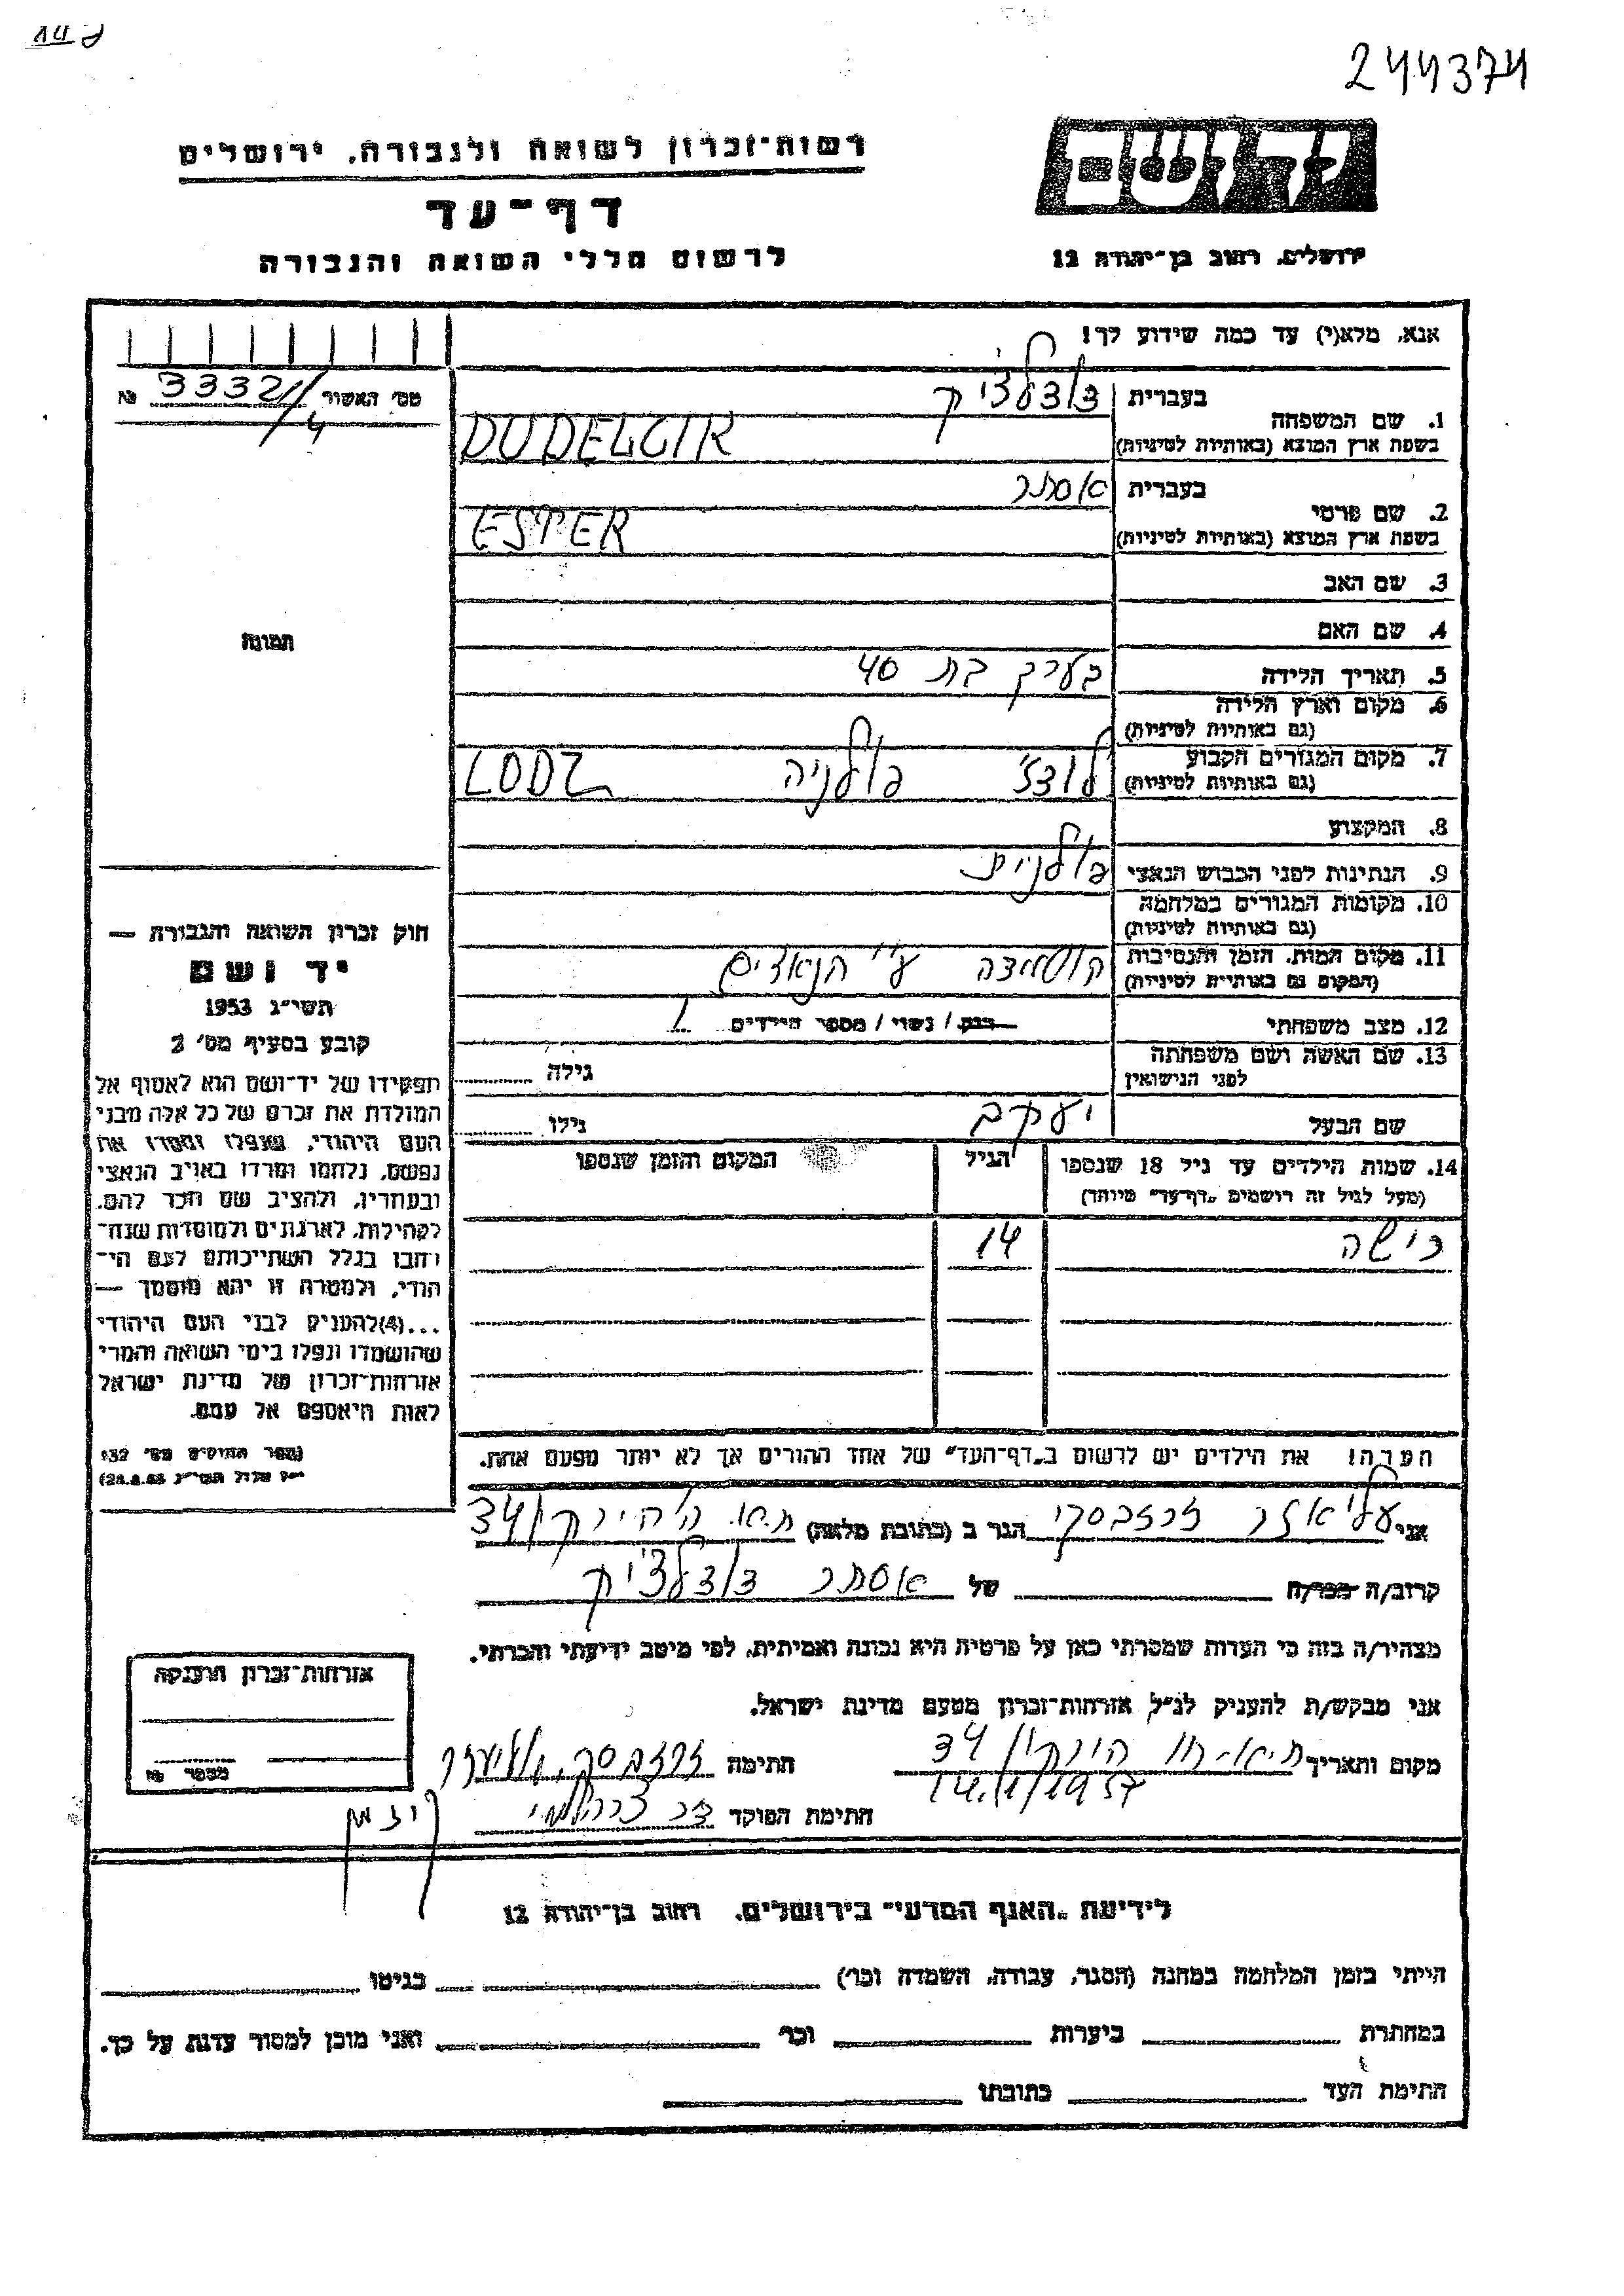 244374
רשות־זכרון לשואה ולגבורה, ירושלים
דף־עד
לרשום חללי השואה והגבורה
יד ושם
ירושלים, רחוב בן־יהודה 12
אנא, מלא(י) עד כמה שידוע לך!
מס׳ האשור 3332/4 №
1. שם המשפחה
בעברית דודלציק
בשפת ארץ המוצא (באותיות לטיניות) DUDELCIK
2. שם פרטי
בעברית אסתר
בשפת ארץ המוצא (באותיות לטיניות) ESTER
3. שם האב
4. שם האם
5. תאריך הלידה בערך בת 40
6. מקום וארץ הלידה
(גם באותיות לטיניות)
7. מקום המגורים הקבוע
(גם באותיות לטיניות) לודז׳ פולניה LODZ
8. המקצוע
9. הנתינות לפני הכבוש הנאצי פולנית
10. מקומות המגורים במלחמה
(גם באותיות לטיניות)
11. מקום המות, הזמן והנסיבות
(המקום גם באותיות לטיניות) הושמדה ע״י הנאצים
12. מצב משפחתי רווק / נשוי / מספר הילדים 1
13. שם האשה ושם משפחתה
לפני הנישואין
גילה
שם הבעל יעקב גילו
14. שמות הילדים עד גיל 18 שנספו
(מעל לגיל זה רושמים „דף־עד״ מיוחד)
הגיל
המקום והזמן שנספו
14
הערה! את הילדים יש לרשום ב„דף־העד״ של אחד ההורים אך לא יותר מפעם אחת.
תמונה
חוק זכרון השואה והגבורה —
יד ושם
תשי״ג 1953
קובע בסעיף מס׳ 2
תפקידו של יד־ושם הוא לאסוף אל
המולדת את זכרם של כל אלה מבני
העם היהודי, שנפלו ומסרו את
נפשם, נלחמו ומרדו באויב הנאצי
ובעוזריו, ולהציב שם וזכר להם,
לקהילות, לארגונים ולמוסדות שנח־
רבו בגלל השתייכותם לעם הי־
הודי, ולמטרה זו יהא מוסמך —
...(4)להעניק לבני העם היהודי
שהושמדו ונפלו בימי השואה והמרי
אזרחות־זכרון של מדינת ישראל
לאות היאספם אל עמם.
(ספר החוקים מס׳ 132
אני הגר ב (כתובת מלאה) ת״א הירקון 34
קרוב/ה מכר/ה של אסתר דודלציק
מצהיר/ה בזה כי העדות שמסרתי כאן על פרטיה היא נכונה ואמיתית, לפי מיטב ידיעתי והכרתי.
אני מבקש/ת להעניק לנ״ל אזרחות־זכרון מטעם מדינת ישראל.
מקום ותאריך ת״א הירקון 34
14.1/1957
חתימה
חתימת הפוקד
אזרחות־זכרון הוענקה
מספר №
לידיעת „האגף המדעי״ בירושלים, רחוב בן־יהודה 12
הייתי בזמן המלחמה במחנה (הסגר, עבודה, השמדה וכו׳) בגיטו
במחתרת ביערות וכו׳ ואני מוכן למסור עדות על כך.
חתימת העד כתובתו